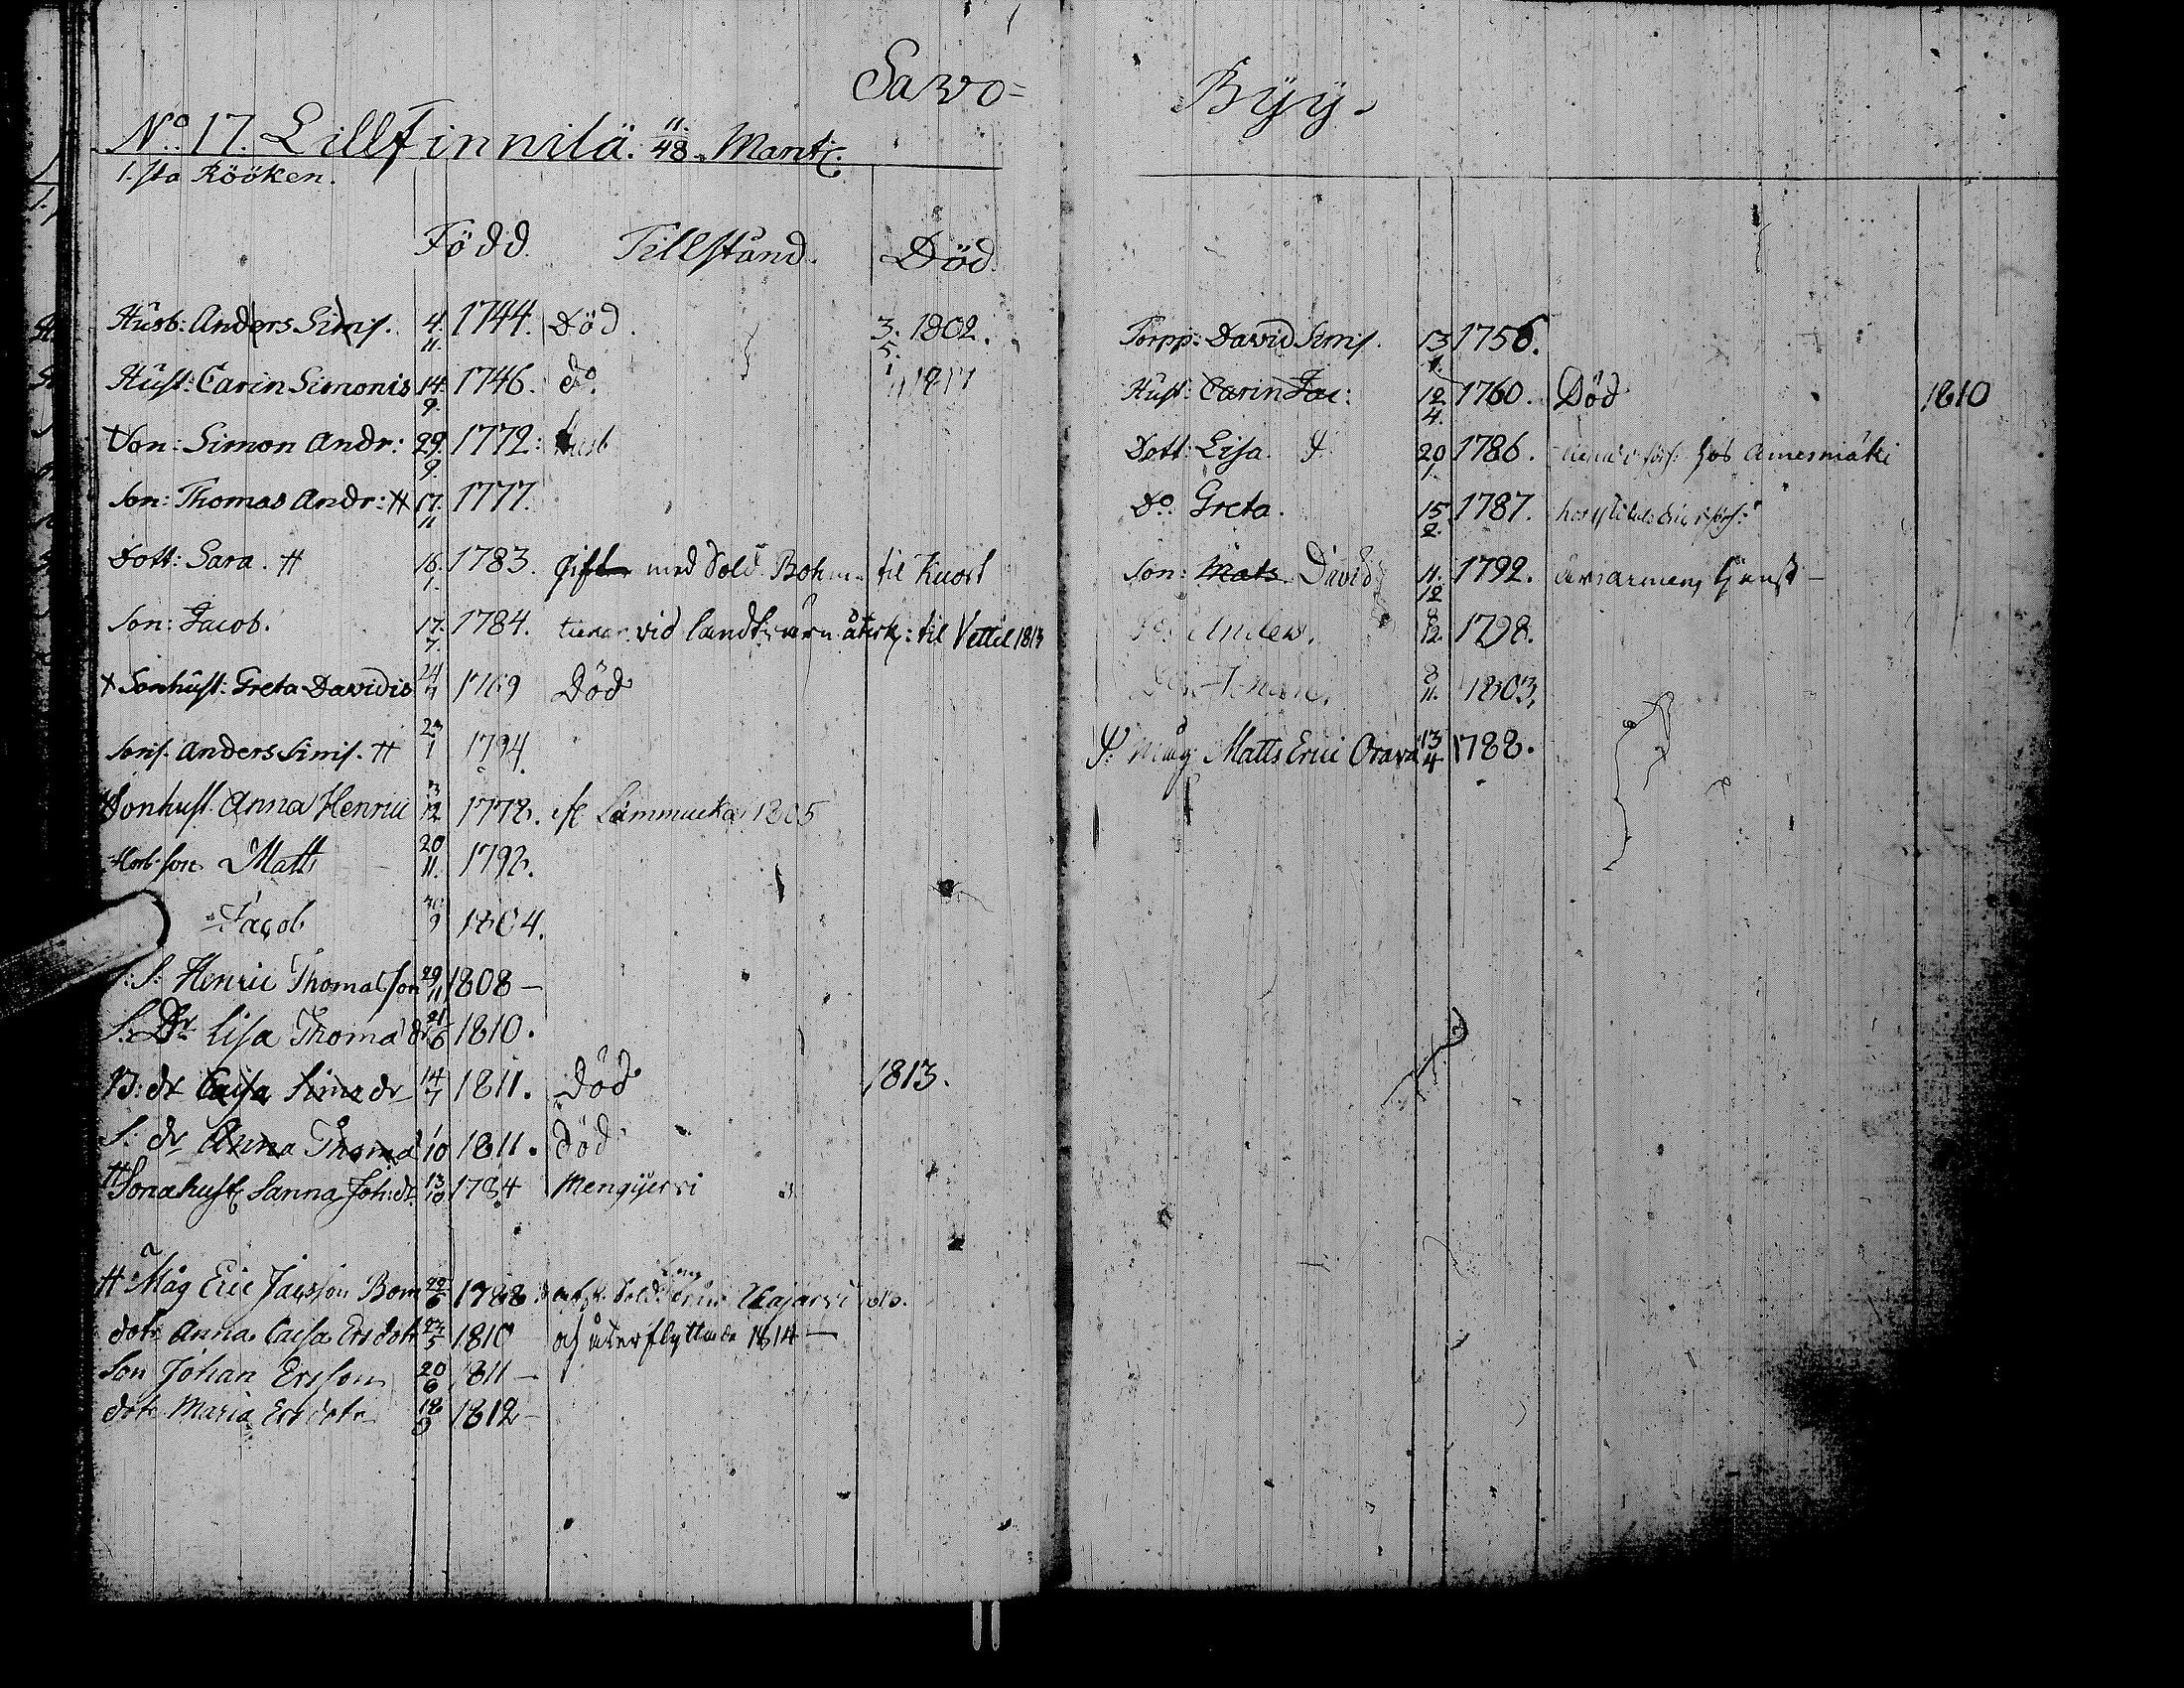 Savo=
No: 17. Lillfinnilä. 11/48. Mantl.
1.sta Rööken.
Född. Tillstånd. Död.
Husb: Anders Sims. 4. 11. 1744. Död. 3. 5. 1802.
Hust: Carin Simonis 14. 9. 1746. do.
Son: Simon Andr: 29. 9. 1772:
Son: Thomas Andr: 17. 11 1777.
Dott: Sara. 16. 1. 1783. gift med Sold. Bohm til Kuort
Son: Jacob. 17. 7. 1784. vid landtvärn återk: til Vettil 1813
Sonhust: Greta Davidis 1769 Död
Sons. Anders Sims. 1794.
Sonhust. Anna Henrici 12 1778. Lammuka 1805
son Matts 20 11. 1792.
Jacob 9 1804.
S: S: Henric Thomasson 29 11 1808 –
S: Dr Lisa Thoma dr 21 6 1810.
B: dr Caisa Sims dr 14 7 1811. Död 1813.
S: dr Anna Thomad 1 10 1811. död
Sonahust Sanna Joh: dr 13 10 1784 Mengyervi
Måg Eric Jacsson Bom 22 6 1788
dotr Anna Caisa Ersdotr 23 5 1810 och återflyttade 1814 –
Son Johan Ersson 20 6 1811 –
dotr Maria Ersdotr 18 9 1812 –
Byy.
Torpp: David Sims. 13 1756.
Hust: Carin Jac: 12 4. 1760. Död 1810
Dott: Lisa. 20 1. 1786. hos
Do: Greta. 15 2. 1787.
Son: Mats David 11. 12 1792.
8 12. 1798.
8 11. 1803.
Måg Matts Erici Orava 13 4 1788.